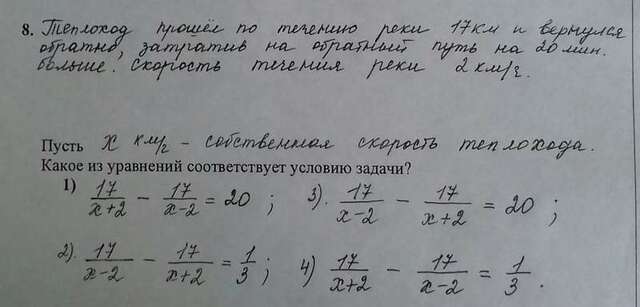 8. Теплоход прошёл по течению реки 17 км и вернулся
обратно, затратив на обратный путь на 20 мин.
больше. Скорость течения реки 2 км/ч.
Пусть x км/ч - собственная скорость теплохода.
Какое из уравнений соответствует условию задачи?
1) 17/(x+2) - 17/(x-2) = 20 ; 3). 17/(x-2) - 17/(x+2) = 20 ;
2). 17/(x-2) - 17/(x+2) = 1/3 ; 4) 17/(x+2) - 17/(x-2) = 1/3 .